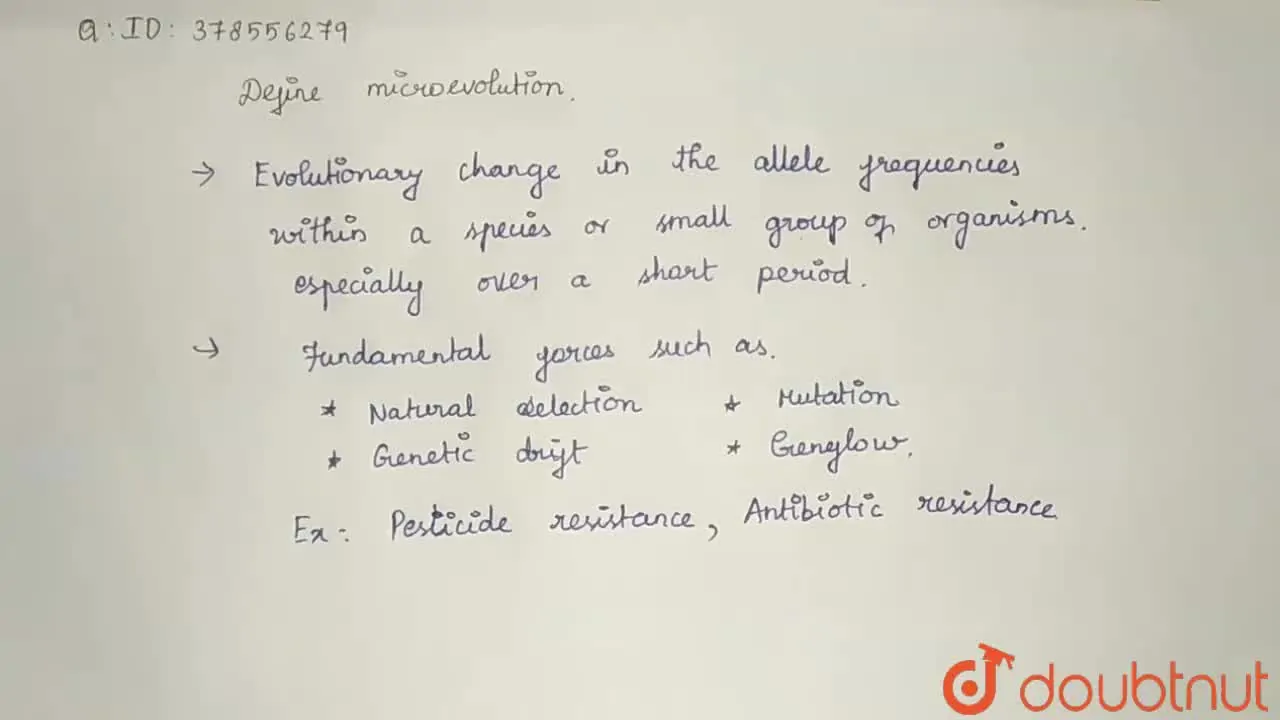 Q:ID: 378556279
Define microevolution.
→ Evolutionary change in the allele frequencies
within a species or small group of organisms.
especially over a short period.
→ Fundamental forces such as.
* Natural selection * Mutation
* Genetic drift * Genflow.
Ex: Pesticide resistance, Antibiotic resistance
doubtnut